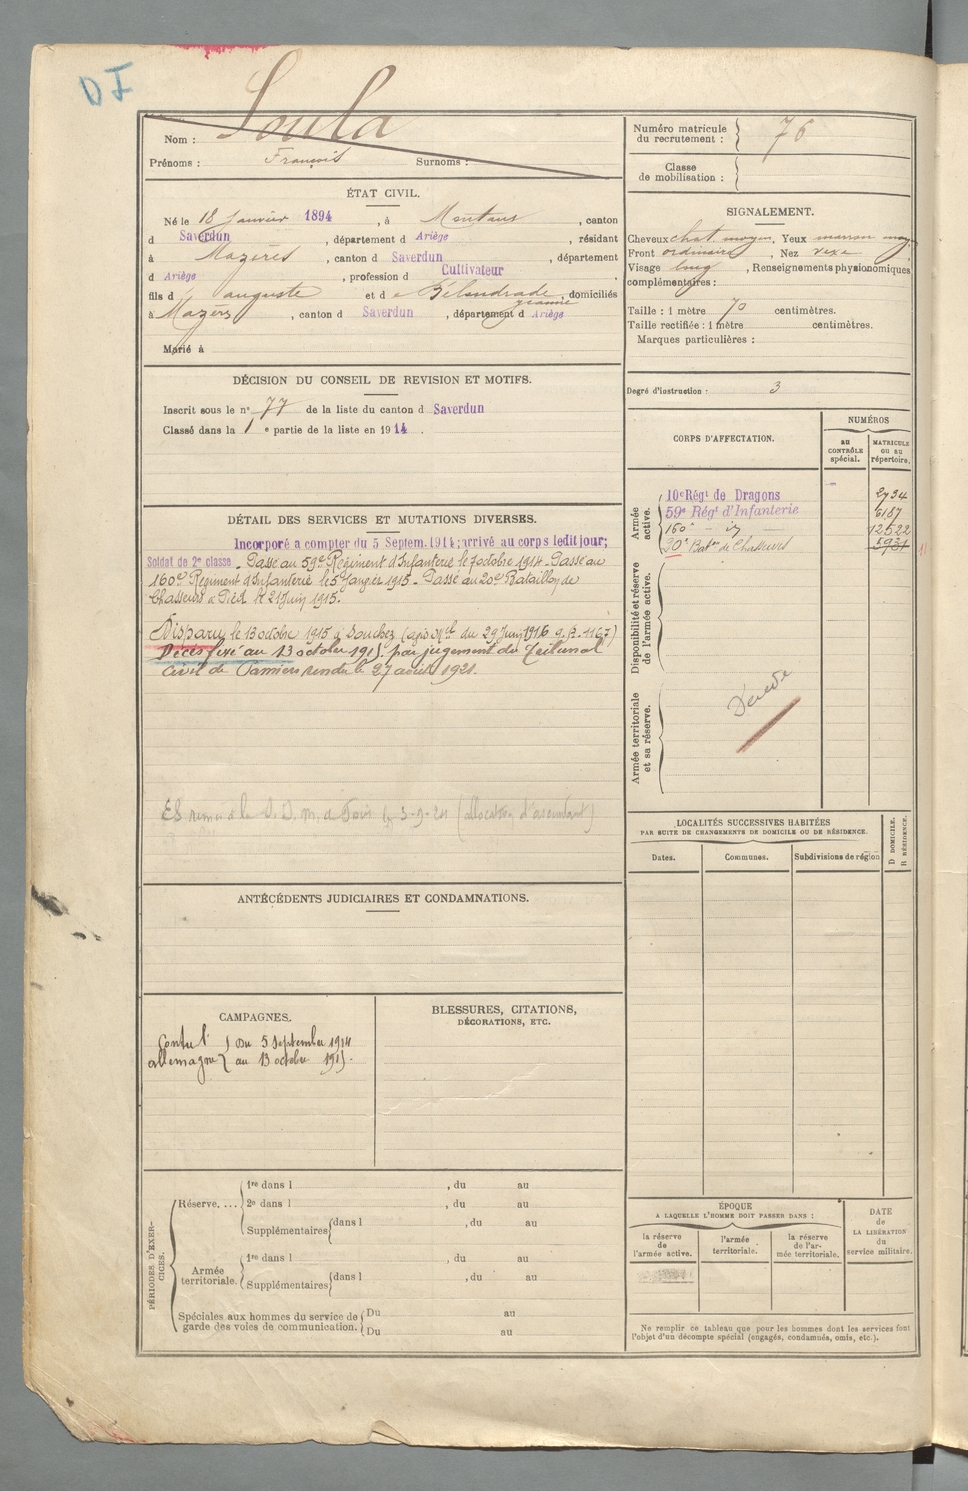 DJ
Nom : Soula
Prénoms : François Surnoms :
ÉTAT CIVIL.
Né le 18 Janvier 1894, à Montaut, canton
d Saverdun, département d Ariège, résidant
à Mazères, canton d Saverdun, département
d Ariège, profession d Cultivateur
fils d auguste et d e Bélondrade, domiciliés
jeanne
à Mazères, canton d Saverdun, département d Ariège
Marié à
DÉCISION DU CONSEIL DE REVISION ET MOTIFS.
Inscrit sous le n° 77 de la liste du canton d Saverdun
Classé dans la 1 e partie de la liste en 1914.
DÉTAIL DES SERVICES ET MUTATIONS DIVERSES.
Incorporé a compter du 5 Septem. 1914; arrivé au corps ledit jour;
Soldat de 2e classe - Passé au 59e Régiment d'Infanterie le 7 octobre 1914 - Passé au
160e Régiment d'Infanterie le 5 Janvier 1915 - Passé au 20e Bataillon de
Chasseurs à Pied le 21 Juin 1915.
Disparu le 13 octobre 1915 à Souchez (avis Mel du 29 Juin 1916 q.R. 1167)
Décès fixé au 13 octobre 1915 par jugement du Tribunal
civil de Pamiers rendu le 27 avril 1921.
ES remis à la S. D. m. de Foix le 3-9-21 (allocation d'ascendant)
ANTÉCÉDENTS JUDICIAIRES ET CONDAMNATIONS.
CAMPAGNES.
Contre l' Du 5 Septembre 1914
allemagne au 13 octobre 1915.
BLESSURES, CITATIONS,
DÉCORATIONS, ETC.
PÉRIODES D'EXERCICES.
Réserve, ...
1re dans l , du au
2e dans l , du au
Supplémentaires dans l , du au
Armée territoriale.
1re dans l , du au
Supplémentaires dans l , du au
Spéciales aux hommes du service de
garde des voies de communication.
Du au
Du au
Numéro matricule
du recrutement : 76
Classe
de mobilisation :
SIGNALEMENT.
Cheveux chat. moyen, Yeux marron moy.
Front ordinaire, Nez vexe
Visage long, Renseignements physionomiques
complémentaires :
Taille : 1 mètre 70 centimètres.
Taille rectifiée : 1 mètre centimètres.
Marques particulières :
Degré d'instruction : 3
CORPS D'AFFECTATION.
NUMÉROS
au
CONTRÔLE
spécial.
MATRICULE
ou au
répertoire.
Armée
active.
10e Régt de Dragons 2734
59e Régt d'Infanterie 6187
160e - id - 12522
20e Baton de Chasseurs 5931
Disponibilité et réserve
de l'armée active.
Armée territoriale
et sa réserve.
Décédé
LOCALITÉS SUCCESSIVES HABITÉES
PAR SUITE DE CHANGEMENTS DE DOMICILE OU DE RÉSIDENCE.
Dates. Communes. Subdivisions de région
D DOMICILE.
R RÉSIDENCE.
ÉPOQUE
A LAQUELLE L'HOMME DOIT PASSER DANS :
la réserve
de
l'armée active.
l'armée
territoriale.
la réserve
de l'ar-
mée territoriale.
DATE
de
LA LIBÉRATION
du
service militaire.
Ne remplir ce tableau que pour les hommes dont les services font
l'objet d'un décompte spécial (engagés, condamnés, omis, etc.).